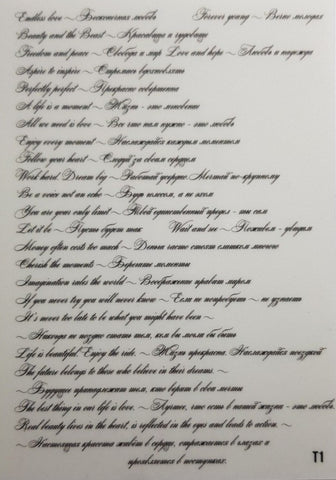 Endless love ~ Бесконечная любовь Forever young ~ Вечно молодая
Beauty and the Beast ~ Красавица и чудовище
Freedom and peace ~ Свобода и мир Love and hope ~ Любовь и надежда
Aspire to inspire ~ Стремись вдохновлять
Perfectly perfect ~ Прекрасно совершенна
A life is a moment ~ Жизнь - это мгновение
All we need is love ~ Все что нам нужно - это любовь
Enjoy every moment ~ Наслаждайся каждым моментом
Follow your heart ~ Следуй за своим сердцем
Work hard. Dream big ~ Работай усердно. Мечтай по-крупному
Be a voice not an echo ~ Будь голосом, а не эхом
You are your only limit ~ Твой единственный предел - ты сам
Let it be ~ Пусть будет так Wait and see ~ Поживём - увидим
Money often costs too much ~ Деньги часто стоят слишком многого
Cherish the moments ~ Берегите моменты
Imagination rules the world ~ Воображение правит миром
If you never try you will never know ~ Если не попробуешь ~ не узнаешь
It's never too late to be what you might have been ~
~ Никогда не поздно стать тем, кем вы могли бы быть
Life is beautiful. Enjoy the ride. ~ Жизнь прекрасна. Наслаждайся поездкой
The future belongs to those who believe in their dreams. ~
~ Будущее принадлежит тем, кто верит в свои мечты
The best thing in our life is love. ~ Лучшее, что есть в нашей жизни - это любовь.
Real beauty lives in the heart, is reflected in the eyes and leads to action. ~
~ Настоящая красота живёт в сердце, отражается в глазах и
проявляется в поступках.
T1